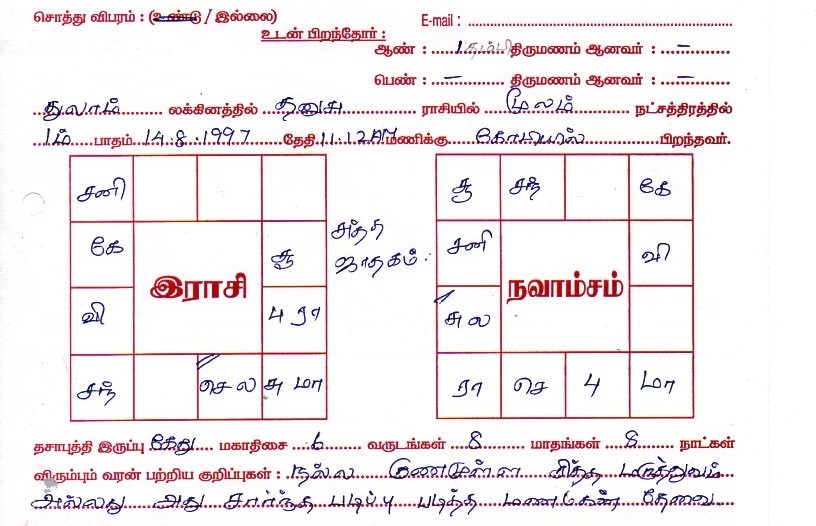 சொத்து விபரம் : (உண்டு / இல்லை)
E-mail :
உடன் பிறந்தோர் :
ஆண் : 1 தம்பி திருமணம் ஆனவர் : –
பெண் : – திருமணம் ஆனவர் : –
துலாம் லக்கினத்தில் தனுசு ராசியில் மூலம் நட்சத்திரத்தில்
1ம் பாதம் 14.8.1997 தேதி 11.12 AM மணிக்கு பிறந்தவர்.
சனி
கே
வி
சந்
செ ல
சு மா
4 ரா
சூ
இராசி
சுத்த
ஜாதகம்.
சூ சந் கே
சனி வி
நவாம்சம்
சு ல
ரா செ 4 மா
தசாபுத்தி இருப்பு கேது மகாதிசை 6 வருடங்கள் 8 மாதங்கள் 8 நாட்கள்
விரும்பும் வரன் பற்றிய குறிப்புகள் : நல்ல குணமுள்ள சித்த மருத்துவம்
அல்லது அது சார்ந்த படிப்பு படித்த மணமகன் தேவை